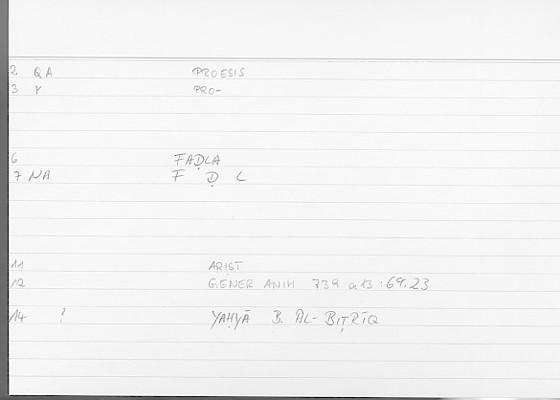 2 QA PROESIS
3 Y PRO-
6 FAḌLA
7 NA F Ḍ L
11 ARIST
12 GENER ANIM 739 a13 : 69.23
14 ? YAḤYĀ B. AL-BIṬRĪQ